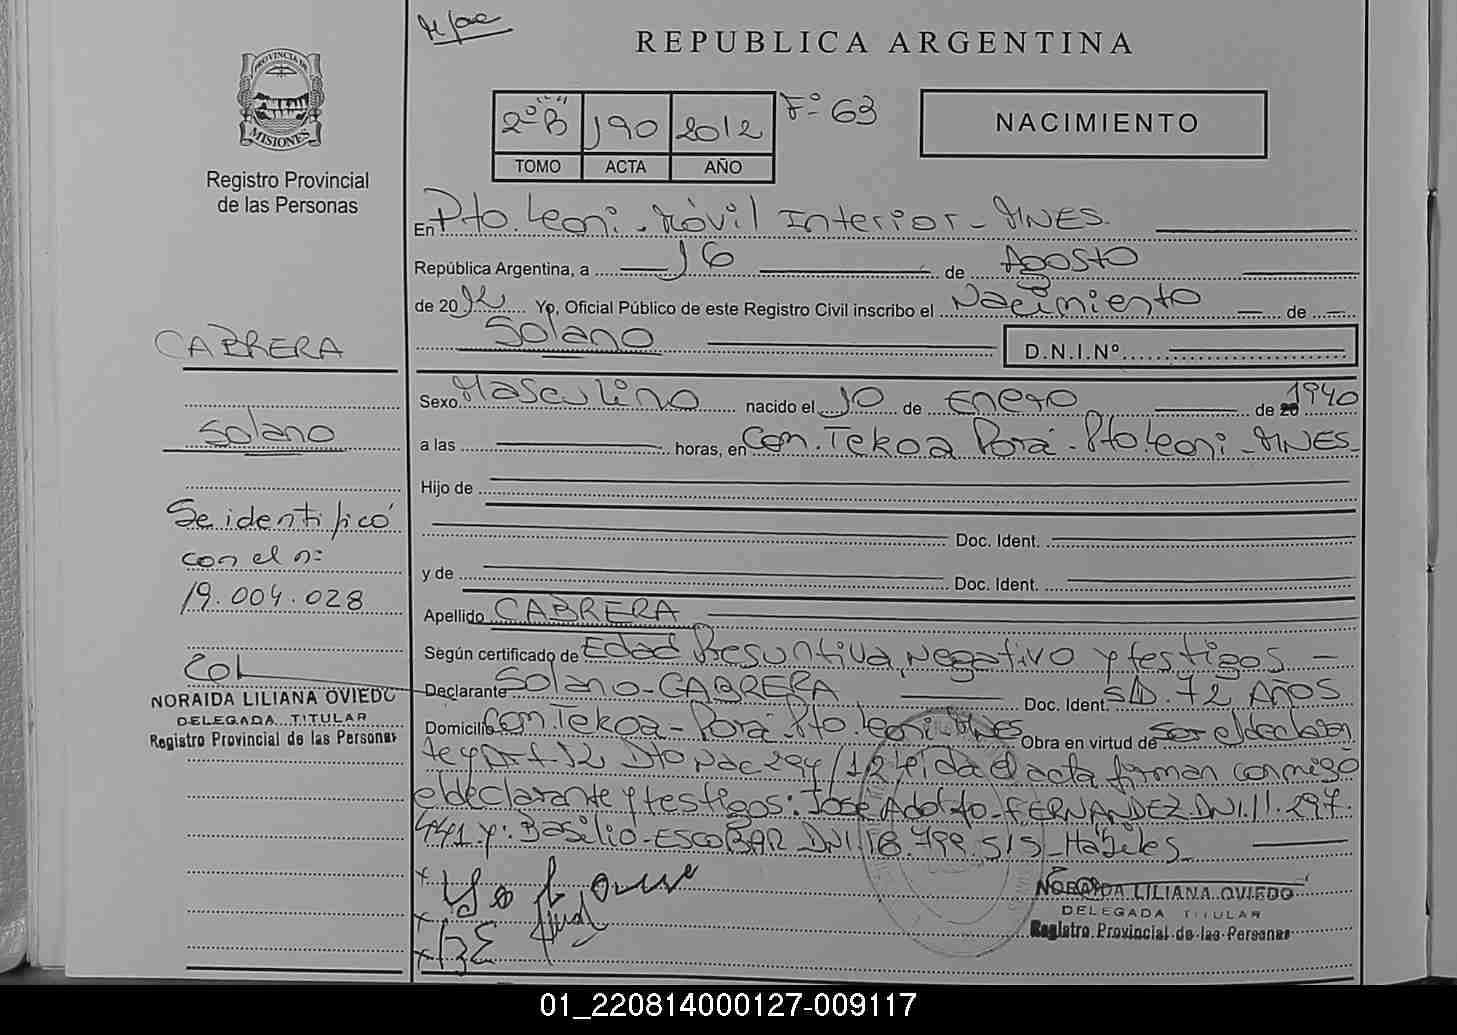 REPUBLICA ARGENTINA
PROVINCIA DE
MISIONES
Registro Provincial
de las Personas
2º B 190 2012 Fº 63
TOMO ACTA AÑO
NACIMIENTO
En Pto. Leoni - Móvil Interior - MNES.
República Argentina, a 16 de Agosto
de 2012 Yo, Oficial Público de este Registro Civil inscribo el Nacimiento de
Solano D.N.I.Nº
Sexo Masculino nacido el 10 de Enero de 1940
a las horas, en Com. Tekoa Porá - Pto. Leoni - MNES
Hijo de
Doc. Ident.
y de Doc. Ident.
Apellido CABRERA
Según certificado de Edad Presuntiva, Negativo y testigos
Declarante Solano - CABRERA Doc. Ident. S/D. 72 AÑOS
Domicilio Com. Tekoa - Porá. Pto. Leoni. MNES Obra en virtud de ser el declaran
te y Art 12 Dto nac 294/12 leída el acta firman conmigo
el declarante y testigos: José Adolfo - FERNANDEZ. DNI. 11.297.
441 y: Basilio - ESCOBAR DNI. 18.799.515 - Hábiles
NORAIDA LILIANA OVIEDO
DELEGADA TITULAR
Registro Provincial de las Personas
CABRERA
Solano
Se identificó
con el nº
19.004.028
NORAIDA LILIANA OVIEDO
DELEGADA TITULAR
Registro Provincial de las Personas
01_220814000127-009117